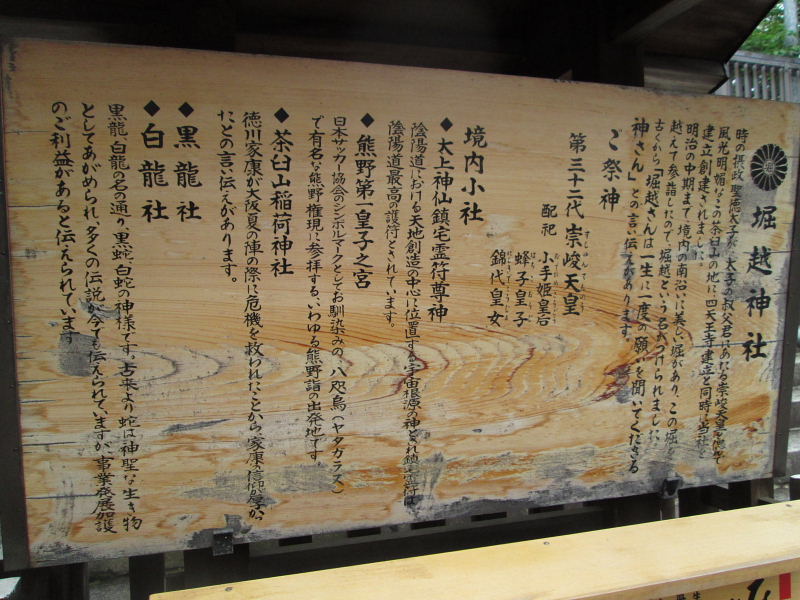 堀越神社
時の摂政 聖徳太子が、太子の叔父君にあたる崇峻天皇を偲んで
風光明媚なこの茶臼山の地に四天王寺建立と同時に当社を
建立創建されました。
明治の中期まで境内の南沿いに美しい堀があり、この堀を
越えて参詣したので、堀越という名が付けられました。
古くから「堀越さんは一生に一度の願いを聞いてくださる
神さん」との言い伝えがあります。
ご祭神
第三十二代 崇峻天皇
配祀 小手姫皇后
蜂子皇子
錦代皇女
境内小社
◆太上神仙鎮宅霊符尊神
陰陽道における天地創造の中心に位置する宇宙根源の神とされ鎮宅霊符は
陰陽道最高の護符とされています。
◆熊野第一皇子之宮
日本サッカー協会のシンボルマークとしてお馴染みの、八咫烏(ヤタガラス)
で有名な熊野権現に参拝する、いわゆる熊野詣の出発地です。
◆茶臼山稲荷神社
徳川家康が大阪夏の陣の際に危機を救われたことから、家康の信仰が厚かっ
たとの言い伝えがあります。
◆黒龍社
◆白龍社
黒龍、白龍の名の通り、黒蛇、白蛇の神様です。古来より蛇は神聖な生き物
としてあがめられ、多くの伝説が今でも伝えられていますが、事業発展加護
のご利益があると伝えられています